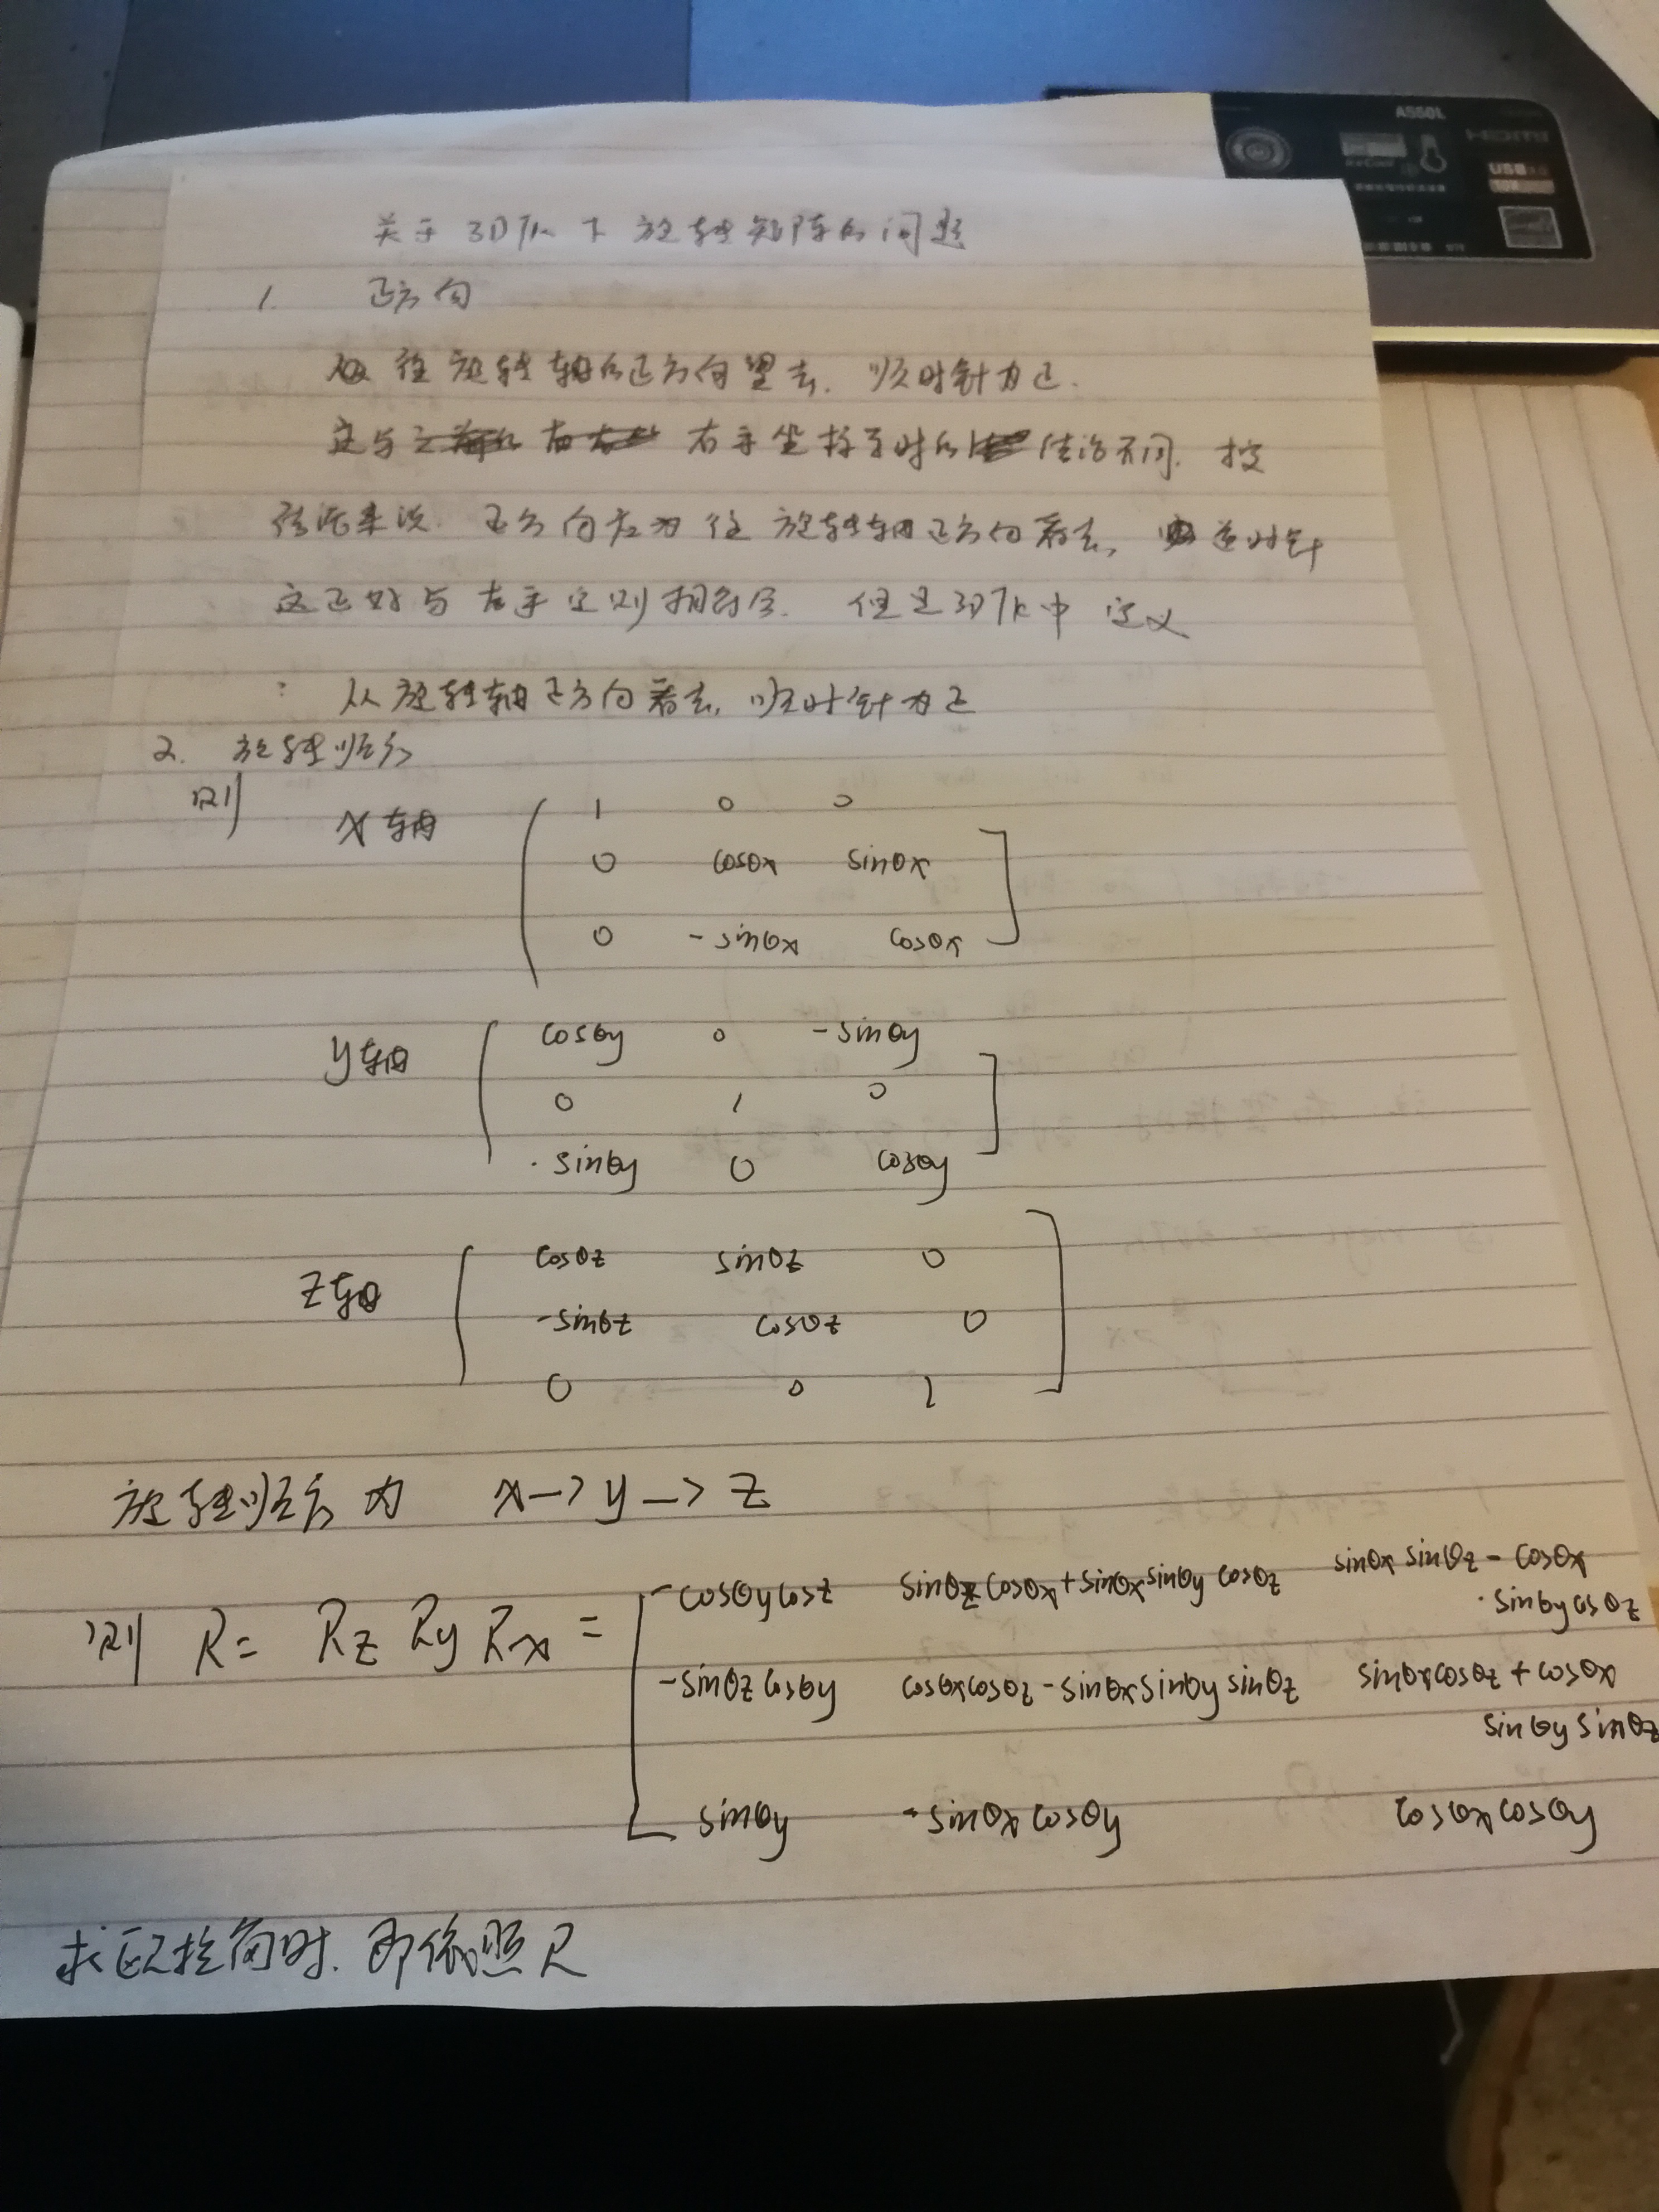 A550L
HDMI
USB 3.0
关于 3D7k 下 旋转矩阵的问题
1. 正方向
往旋转轴的正方向望去. 顺时针为正.
这与 右手坐标系时的 结论不同. 按
结论来说. 正方向应为 往 旋转轴正方向看去, 逆时针
这正好与 右手定则相符合. 但是3D7k中 定义
: 从旋转轴正方向看去, 顺时针为正
2. 旋转顺序
则 x轴 ( 1 0 0
0 cosθx sinθx
0 -sinθx cosθx ]
y轴 [ cosθy 0 -sinθy
0 1 0 ]
sinθy 0 cosθy
z轴 [ cosθz sinθz 0
-sinθz cosθz 0
0 0 1 ]
旋转顺序为 x->y->z
则 R= Rz Ry Rx = [ cosθycosz sinθz cosθx+sinθxsinθy cosθz sinθx sinθz - cosθx
· sinθycosθz
-sinθz cosθy cosθxcosθz -sinθxsinθy sinθz sinθxcosθz + cosθx
sinθy sinθz
sinθy -sinθx cosθy cosθxcosθy
求欧拉角时. 即依照R